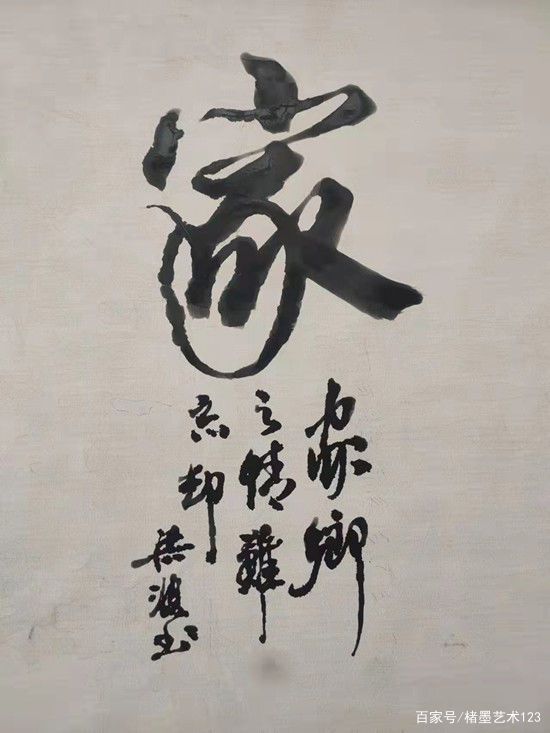 家
家乡
之情難
忘却
梁波书
百家号/楮墨艺术123